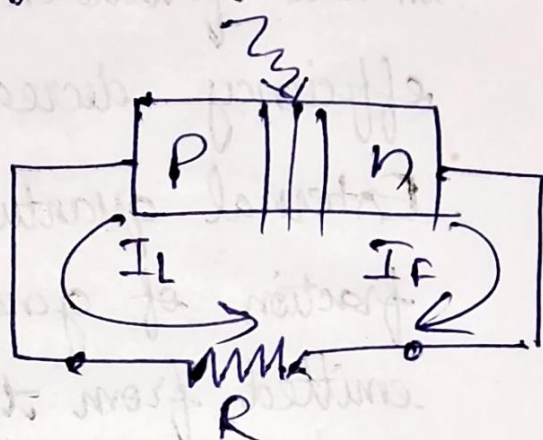 P n
I_L I_F
R